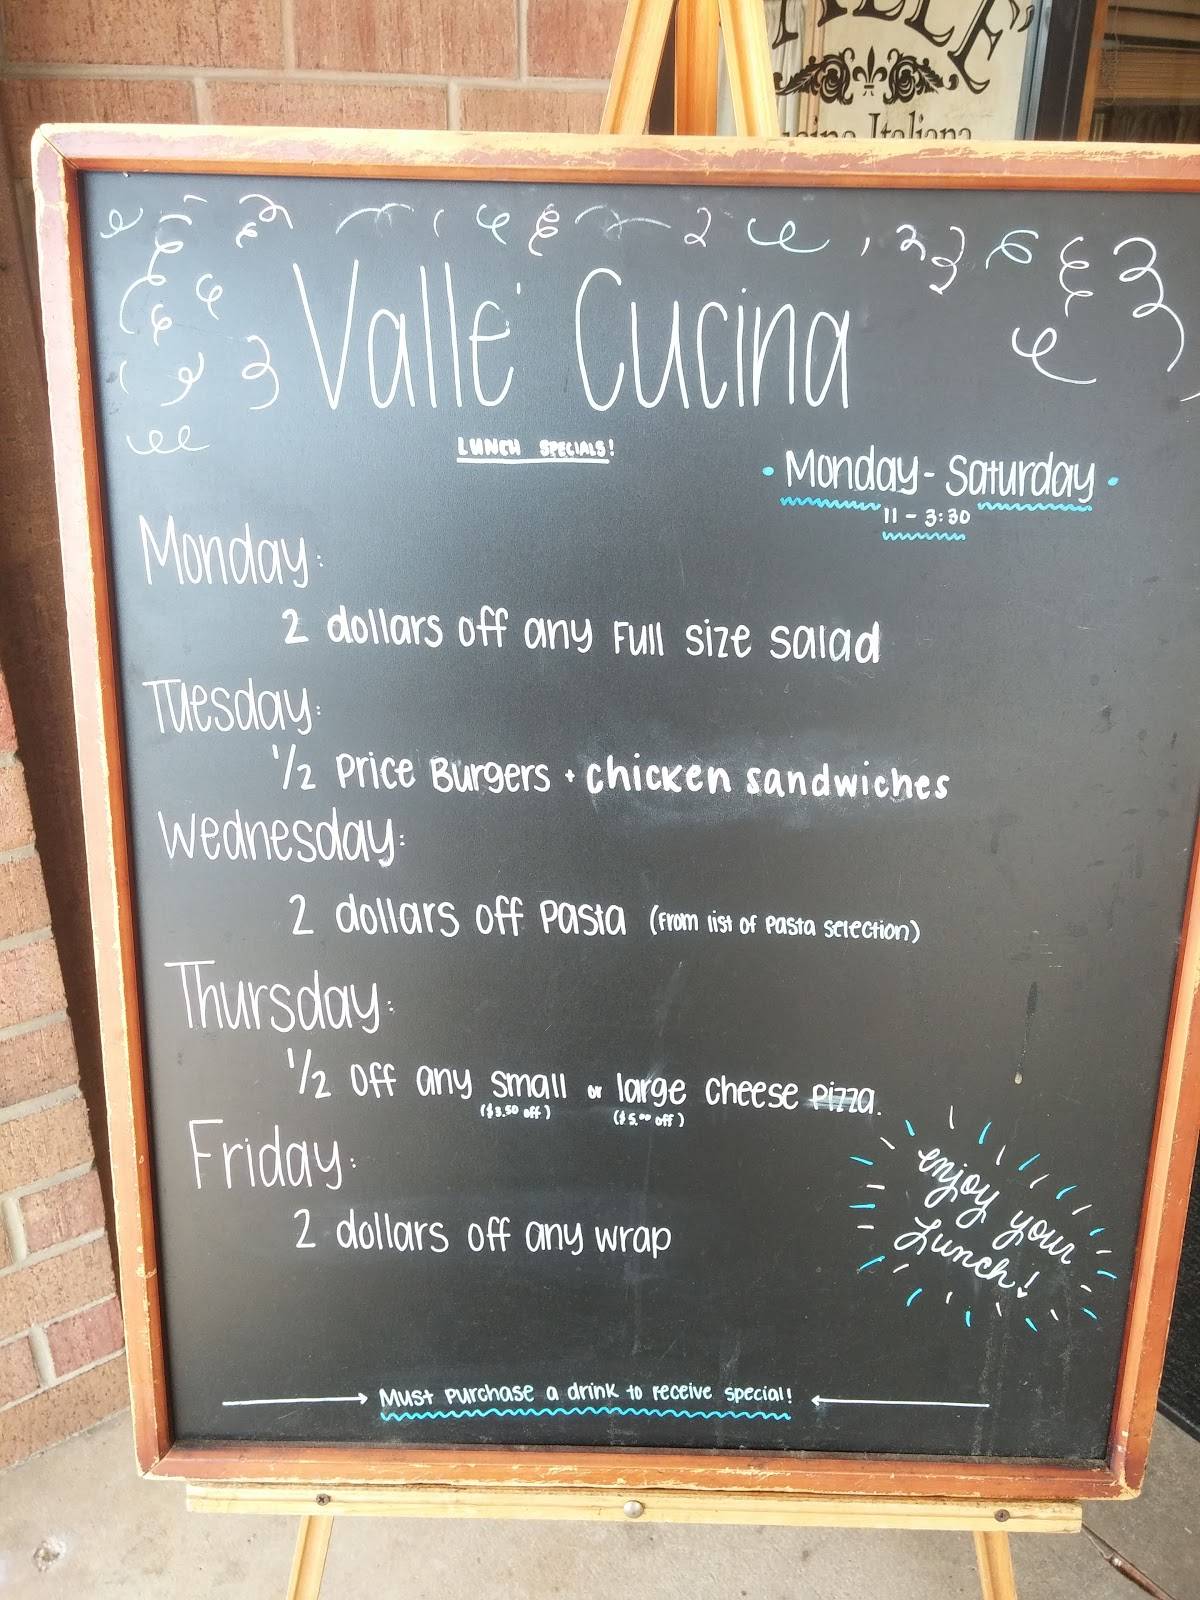 VALLE
cina Italiana
Valle' Cucina
LUNCH SPECIALS!
• Monday - Saturday •
11 - 3:30
Monday:
2 dollars off any Full size salad
Tuesday:
1/2 Price Burgers + chicken sandwiches
Wednesday:
2 dollars off Pasta (From list of Pasta selection)
Thursday:
1/2 off any small or large cheese pizza.
($3.50 off) ($5.00 off)
Friday:
2 dollars off any wrap
enjoy your
Lunch!
Must purchase a drink to receive special!